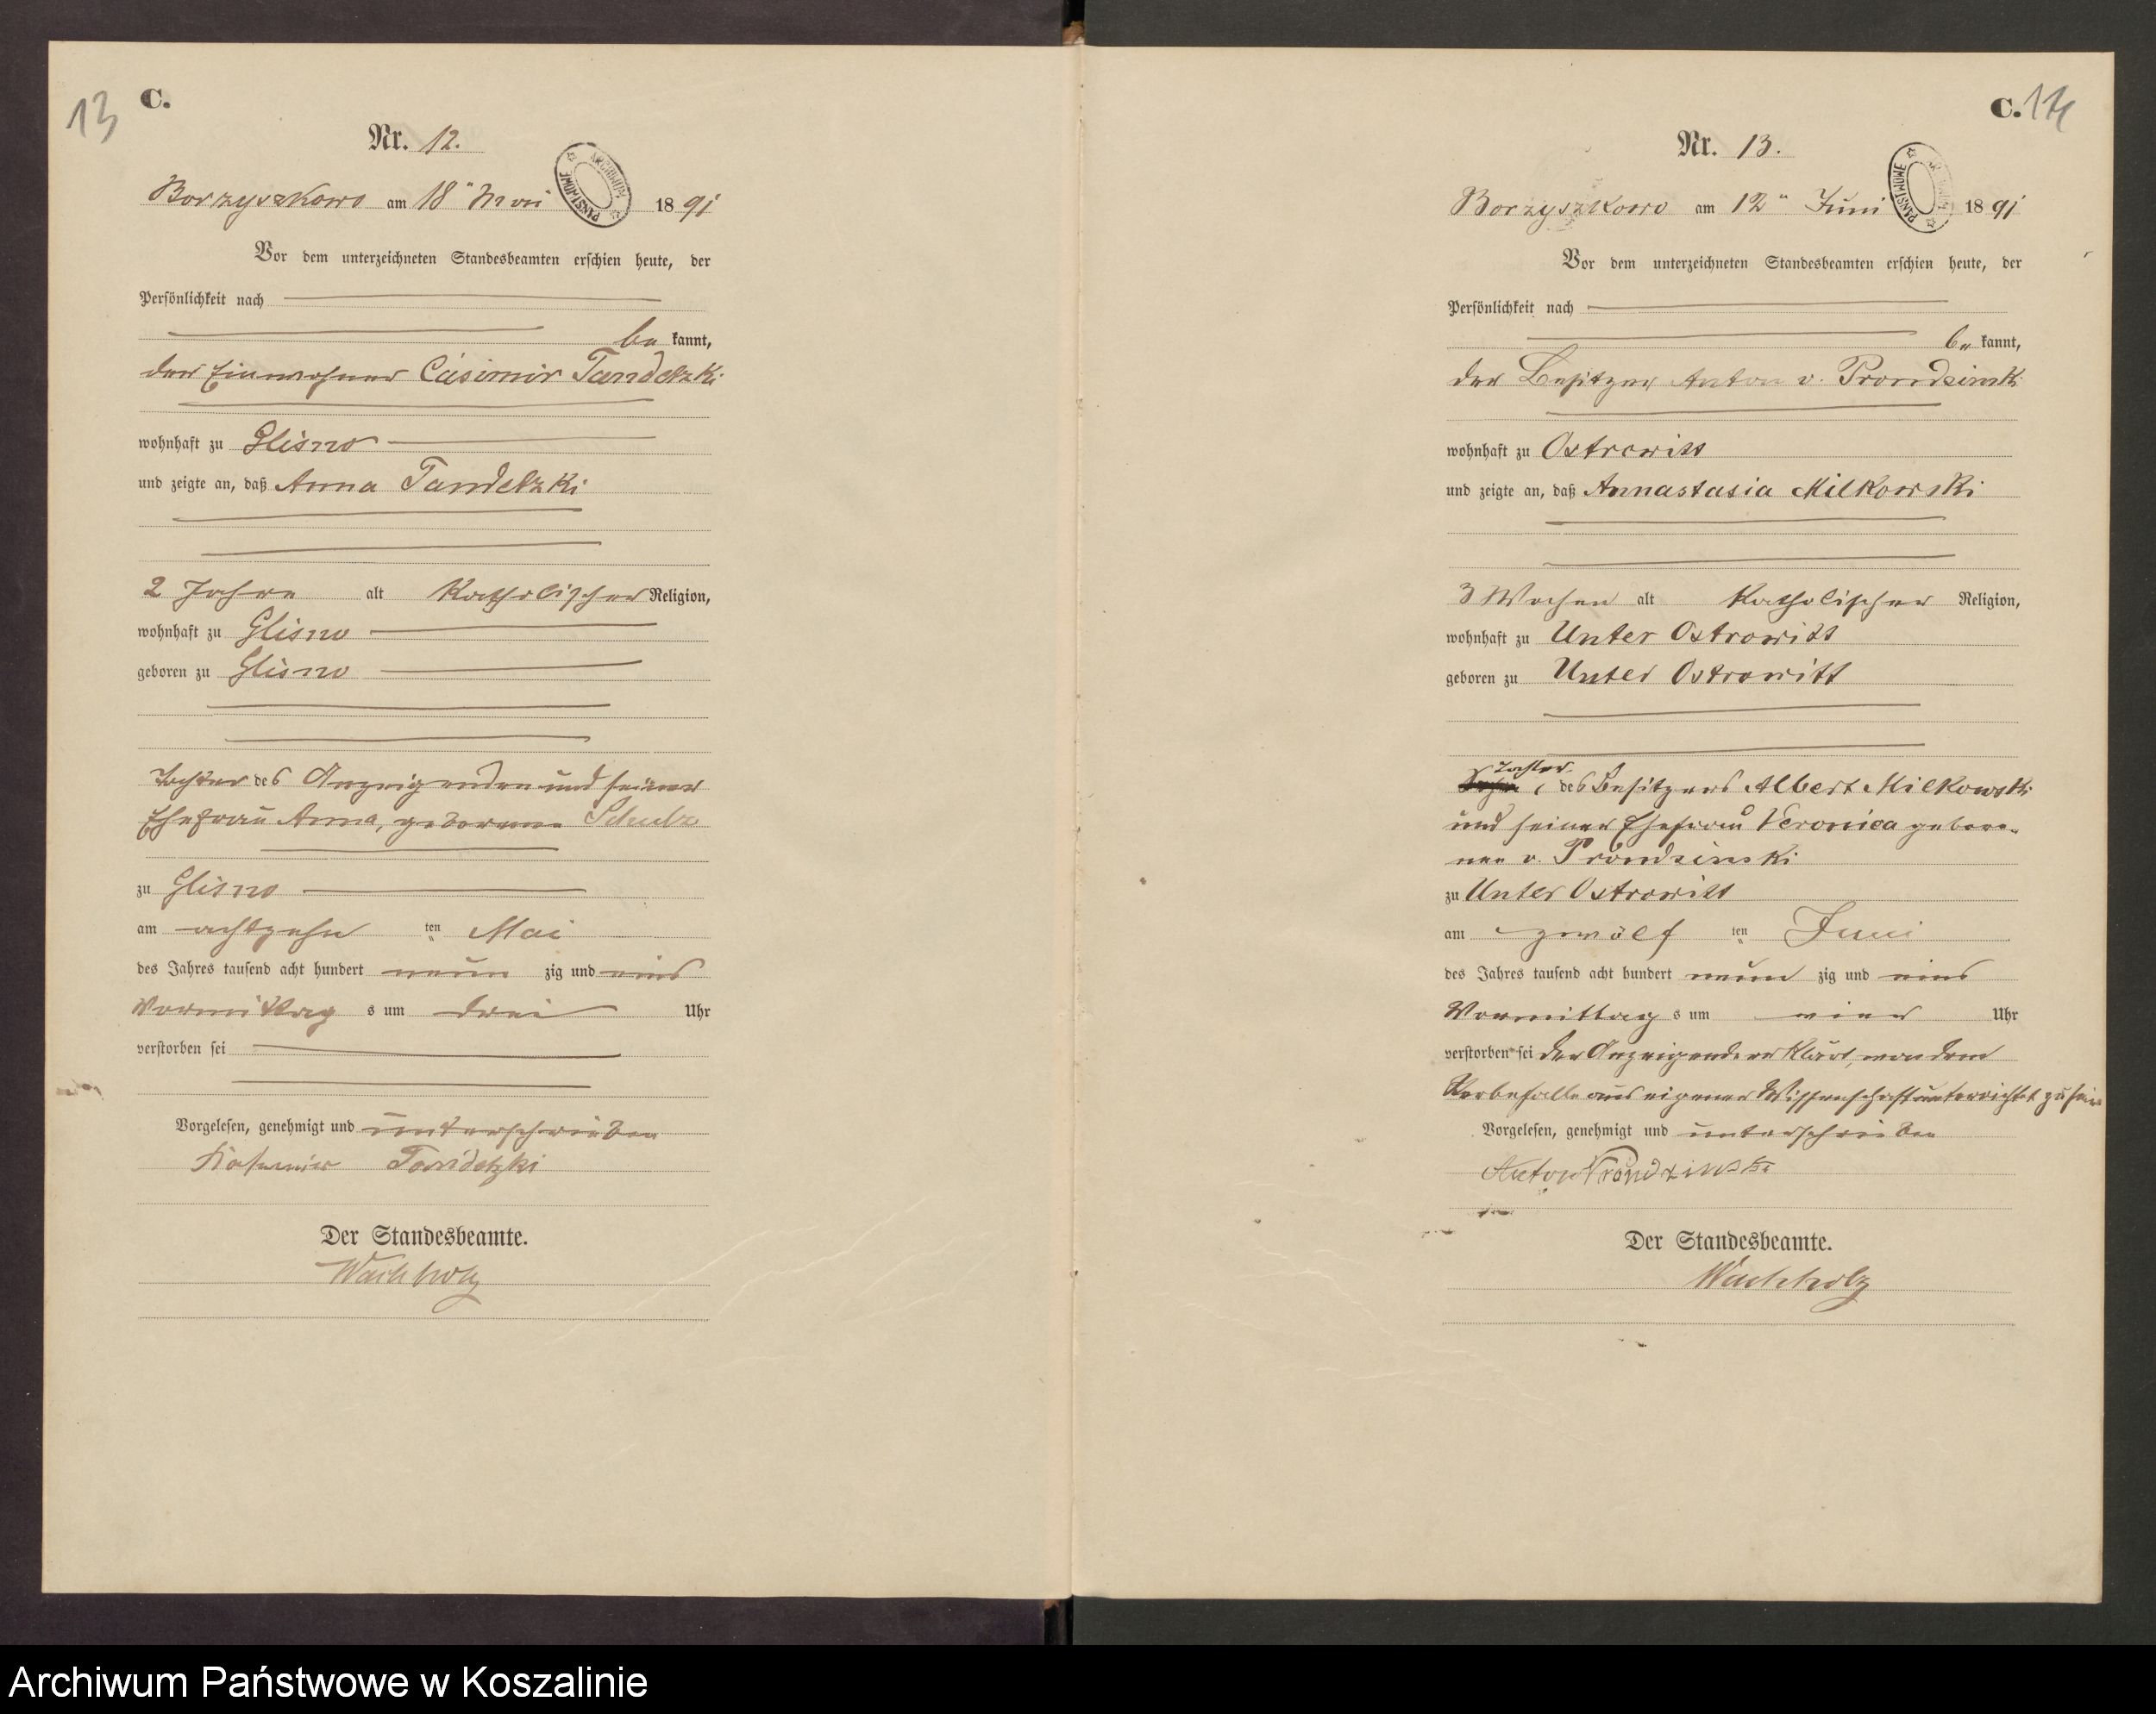 13
C.
Nr. 12.
ARCHIWUM PAŃSTWOWE
Borzyszkowo am 18" Mai 1891
Vor dem unterzeichneten Standesbeamten erschien heute, der
Persönlichkeit nach
bekannt,
der Einwohner Casimir Tandetzki
wohnhaft zu Glisno
und zeigte an, daß Anna Tandetzki
2 Jahre alt Katholischer Religion,
wohnhaft zu Glisno
geboren zu Glisno
Tochter des Anzeigenden und seiner
Ehefrau Anna, geborene Schulz
zu Glisno
am achtzehn ten Mai
des Jahres tausend acht hundert neun zig und eins
Vormittag s um drei Uhr
verstorben sei
Vorgelesen, genehmigt und unterschrieben
Kasimir Tandetzki
Der Standesbeamte.
Wachholz
C. 14
Nr. 13.
ARCHIWUM PAŃSTWOWE
Borzyszkowo am 12" Juni 1891
Vor dem unterzeichneten Standesbeamten erschien heute, der
Persönlichkeit nach
bekannt,
der Besitzer Anton v. Prondzinski
wohnhaft zu Ostrowitt
und zeigte an, daß Annastasia Milkowski
3 Wochen alt Katholischer Religion,
wohnhaft zu Unter Ostrowitt
geboren zu Unter Ostrowitt
Tochter
des Besitzers Albert Milkowski
und seiner Ehefrau Veronica gebore-
nen v. Prondzinski
zu Unter Ostrowitt
am zwölf ten Juni
des Jahres tausend acht hundert neun zig und eins
Vormittag s um vier Uhr
verstorben sei der Anzeigende erklärt, von dem
Sterbefalle aus eigener Wissenschaft unterrichtet zu sein
Vorgelesen, genehmigt und unterschrieben
Anton Prondzinski
Der Standesbeamte.
Wachholz
Archiwum Państwowe w Koszalinie